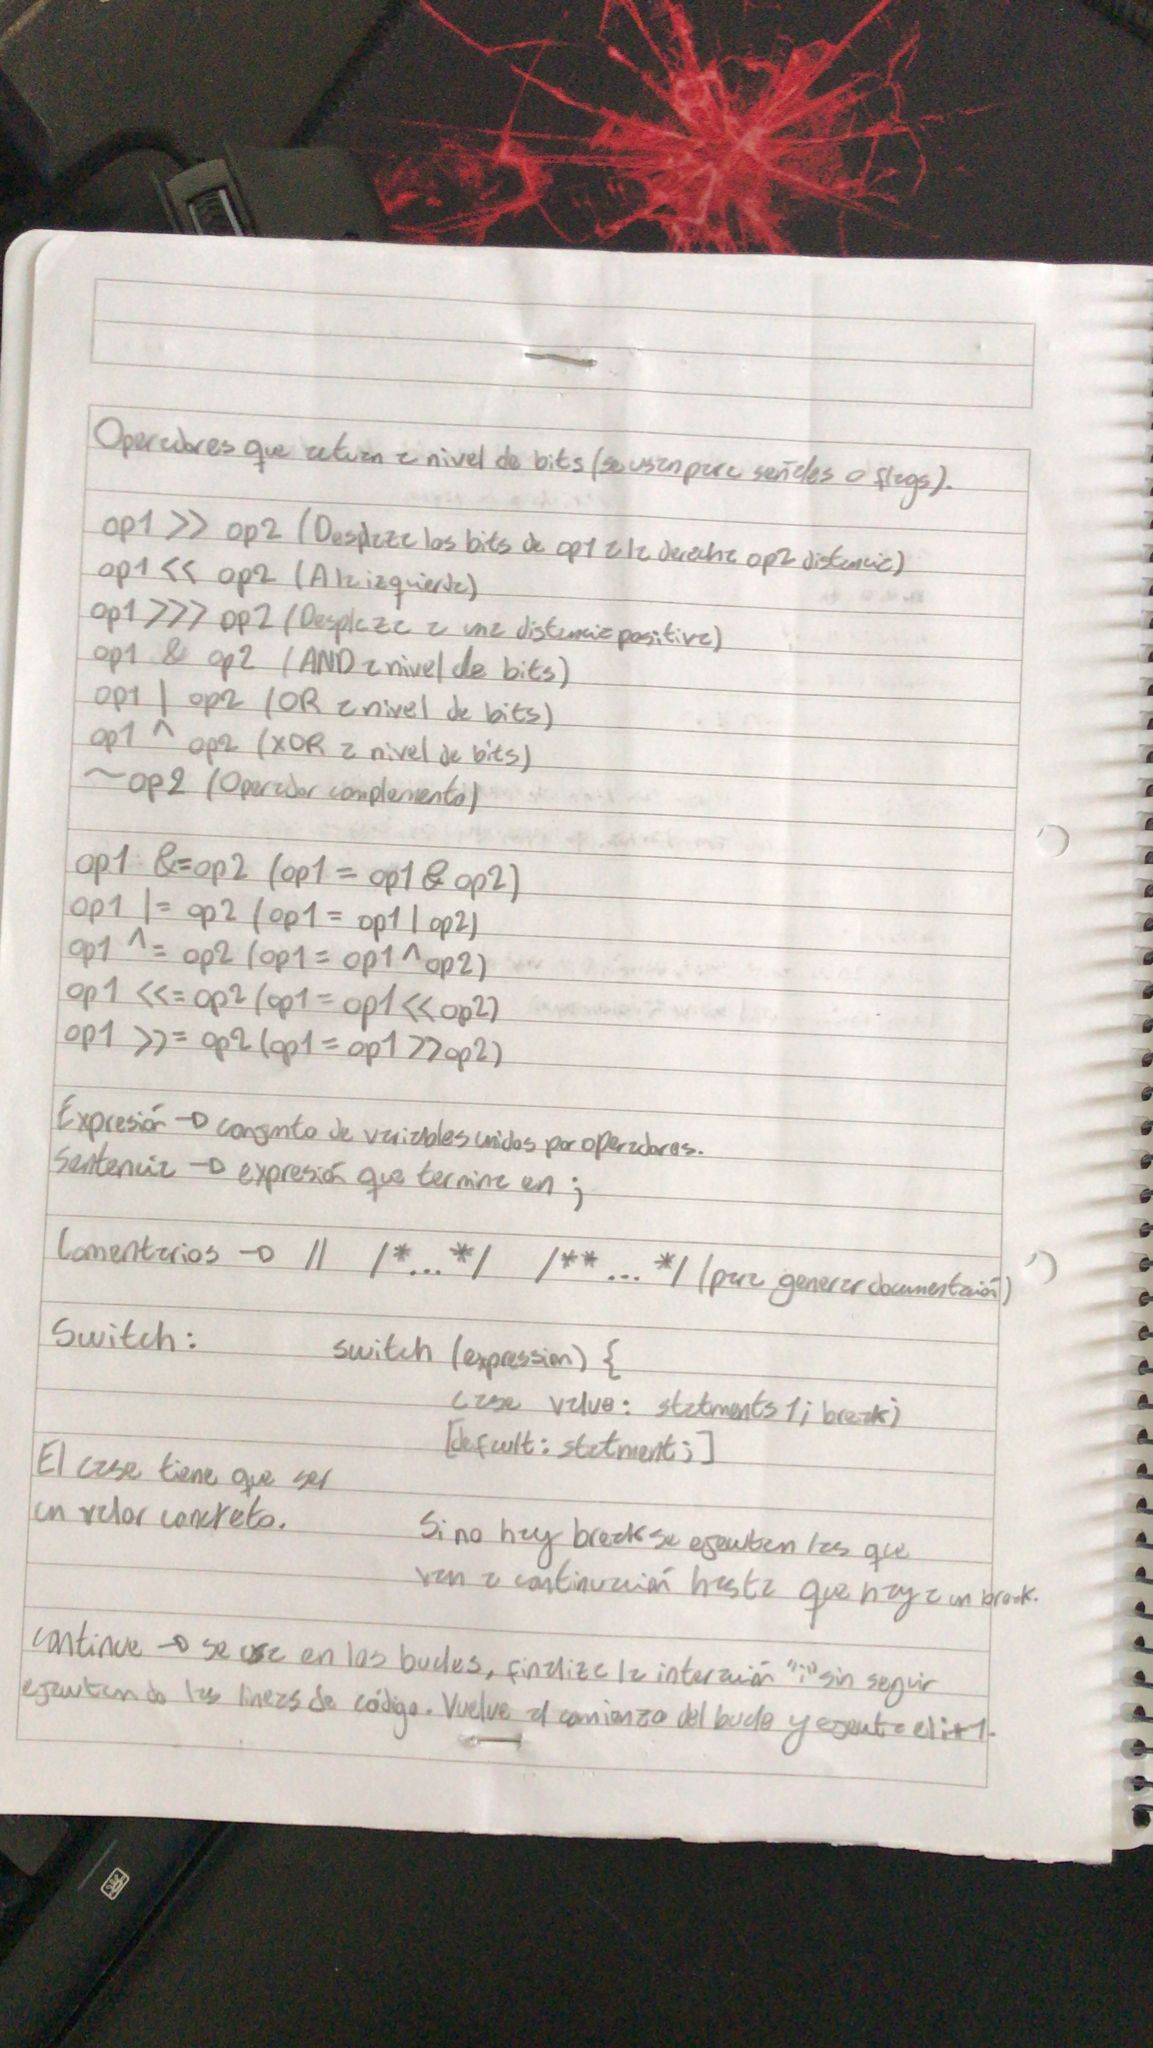 Operadores que actuan a nivel de bits (se usan para señales o flags).
op1 >> op2 (Desplaza los bits de op1 a la derecha op2 distancia)
op1 << op2 (A la izquierda)
op1 >>> op2 (Desplaza a una distancia positiva)
op1 & op2 (AND a nivel de bits)
op1 | op2 (OR a nivel de bits)
op1 ^ op2 (XOR a nivel de bits)
~op2 (Operador complemento)
op1 &=op2 (op1 = op1 & op2)
op1 |= op2 (op1 = op1 | op2)
op1 ^= op2 (op1 = op1 ^ op2)
op1 <<= op2 (op1 = op1 << op2)
op1 >>= op2 (op1 = op1 >> op2)
Expresión → conjunto de variables unidos por operadores.
Sentencia → expresión que termina en ;
Comentarios → // /*...*/ /**...*/ (para generar documentación)
Switch: switch (expression) {
case value: statments1; break;
[default: statment;]
El case tiene que ser
un valor concreto.
Si no hay break se ejecutan las que
van a continuación hasta que haya un break.
continue → se usa en los bucles, finaliza la interación "i" sin seguir
ejecutando las lineas de código. Vuelve al comienzo del bucle y ejecuta el i+1.